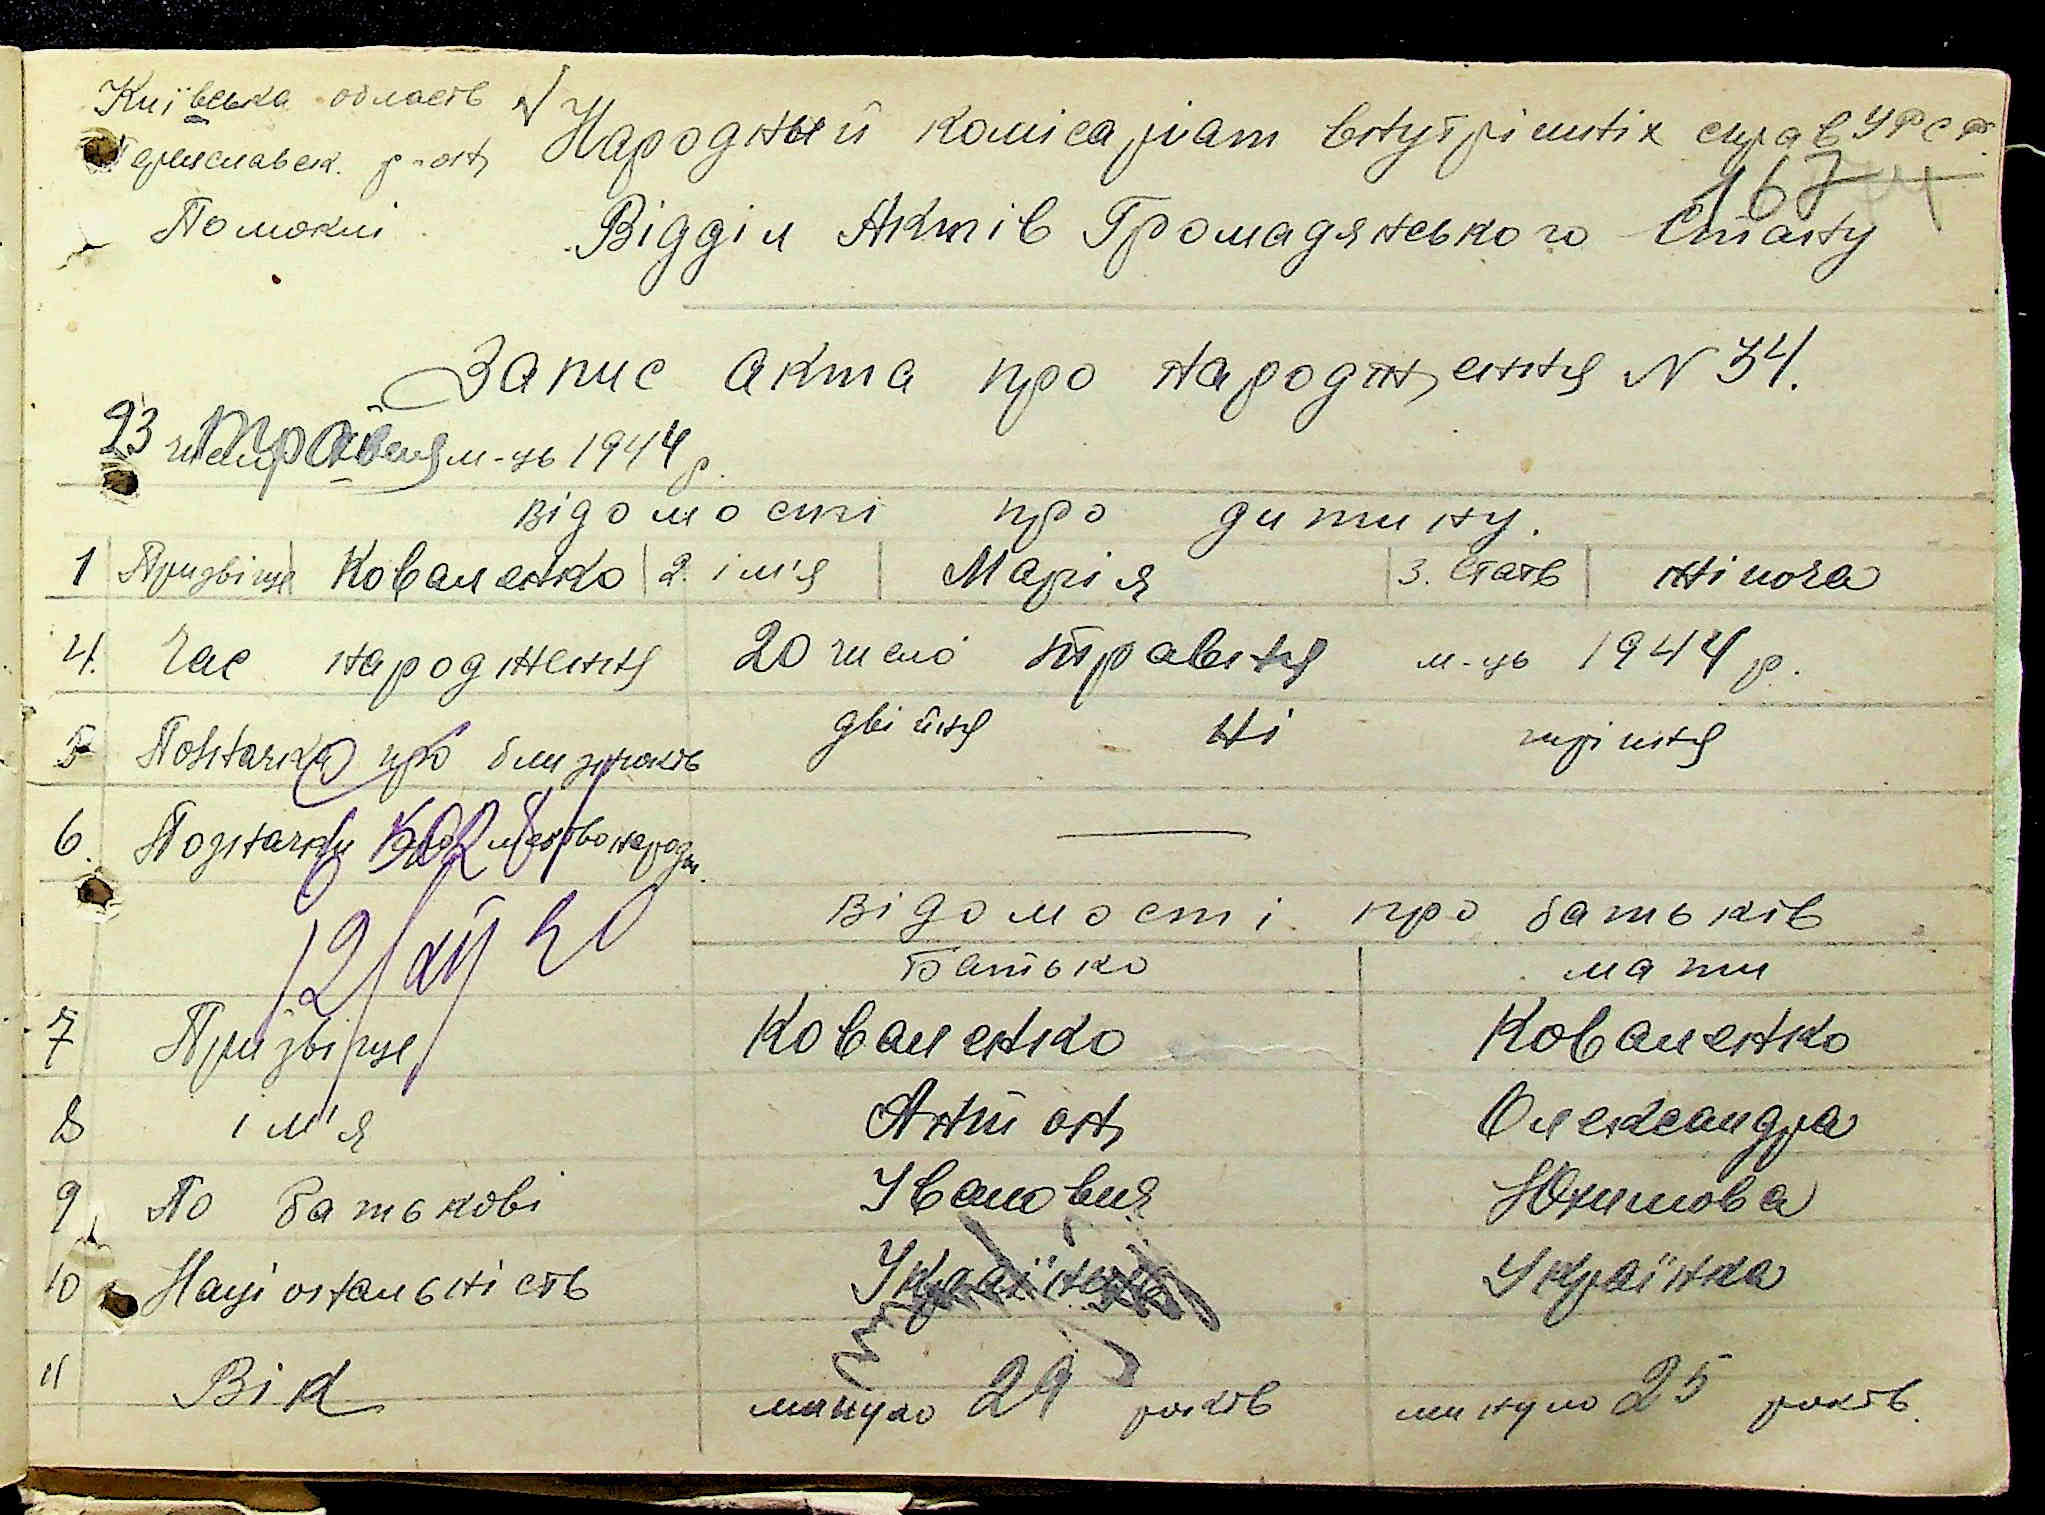 Київська область
Переяславськ. р-он
Помоклі
Народный комісаріат внутрішніх справ УРСР.
167
Відділ Актів Громадянського Стану
Запис акта про народження N 34.
23 число травня м-ць 1944 р.
відомості про дитину.
1 Призвіще Коваленко 2. ім'я Марія 3. Стать жіноча
4. Час народження 20 число травня м-ць 1944 р.
5 Позначка про близнюків двійня Ні трійня
6. Позначка про мертвонарод.
відомості про батьків
батько мати
7 Призвіще Коваленко Коваленко
8 ім'я Антон Олександра
9 По батькові Іванович Юхимова
10 Національність Українець Українка
11 Вік минуло 29 років минуло 25 років.